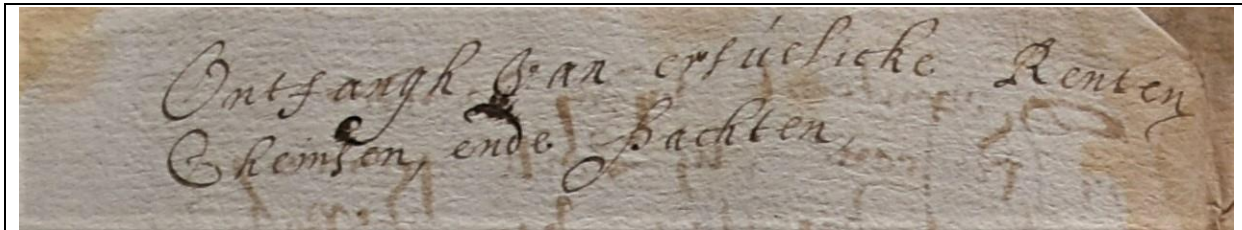 Ontfangh van erfúelicke Renten
Cheinsen, ende Pachten